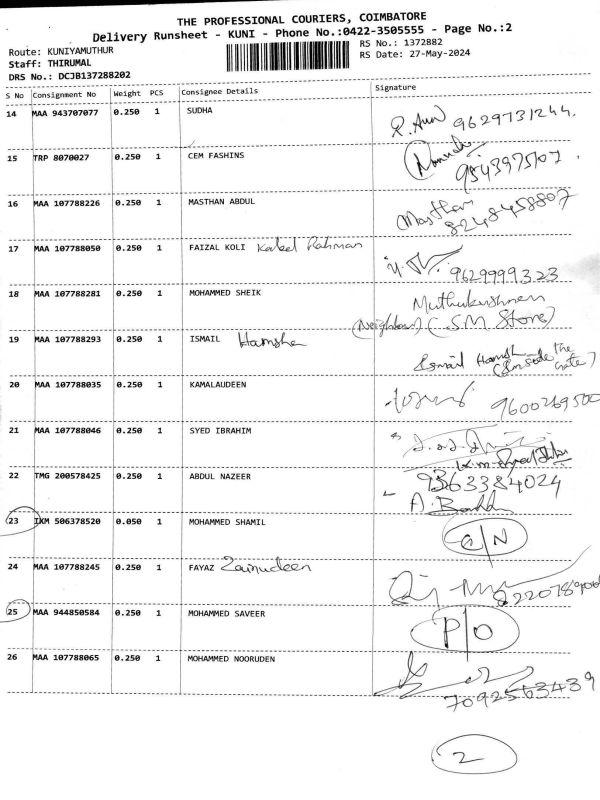 THE PROFESSIONAL COURIERS, COIMBATORE
Delivery Runsheet - KUNI - Phone No.:0422-3505555 - Page No.:2
Route: KUNIYAMUTHUR
RS No.: 1372882
Staff: THIRUMAL
RS Date: 27-May-2024
DRS No.: DCJB137288202
S No Consignment No Weight PCS Consignee Details Signature
14 MAA 943707077 0.250 1 SUDHA
9629731244.
15 TRP 8070027 0.250 1 CEM FASHINS
9543975107.
16 MAA 107788226 0.250 1 MASTHAN ABDUL Masthan
8248458807
17 MAA 107788050 0.250 1 FAIZAL KOLI Kabel Rahman
9629999323
18 MAA 107788281 0.250 1 MOHAMMED SHEIK Muthukrishnan
(Neighbour) (SM Store)
19 MAA 107788293 0.250 1 ISMAIL Hamsha
Ismail Hamsh (Inside the Gate)
20 MAA 107788035 0.250 1 KAMALAUDEEN
9600269500
21 MAA 107788046 0.250 1 SYED IBRAHIM
22 TMG 200578425 0.250 1 ABDUL NAZEER 9363384024
23 IXM 506378520 0.050 1 MOHAMMED SHAMIL C/N
24 MAA 107788245 0.250 1 FAYAZ Zainudeen
25 MAA 944850584 0.250 1 MOHAMMED SAVEER P/O
26 MAA 107788065 0.250 1 MOHAMMED NOORUDEN
7092563439
2